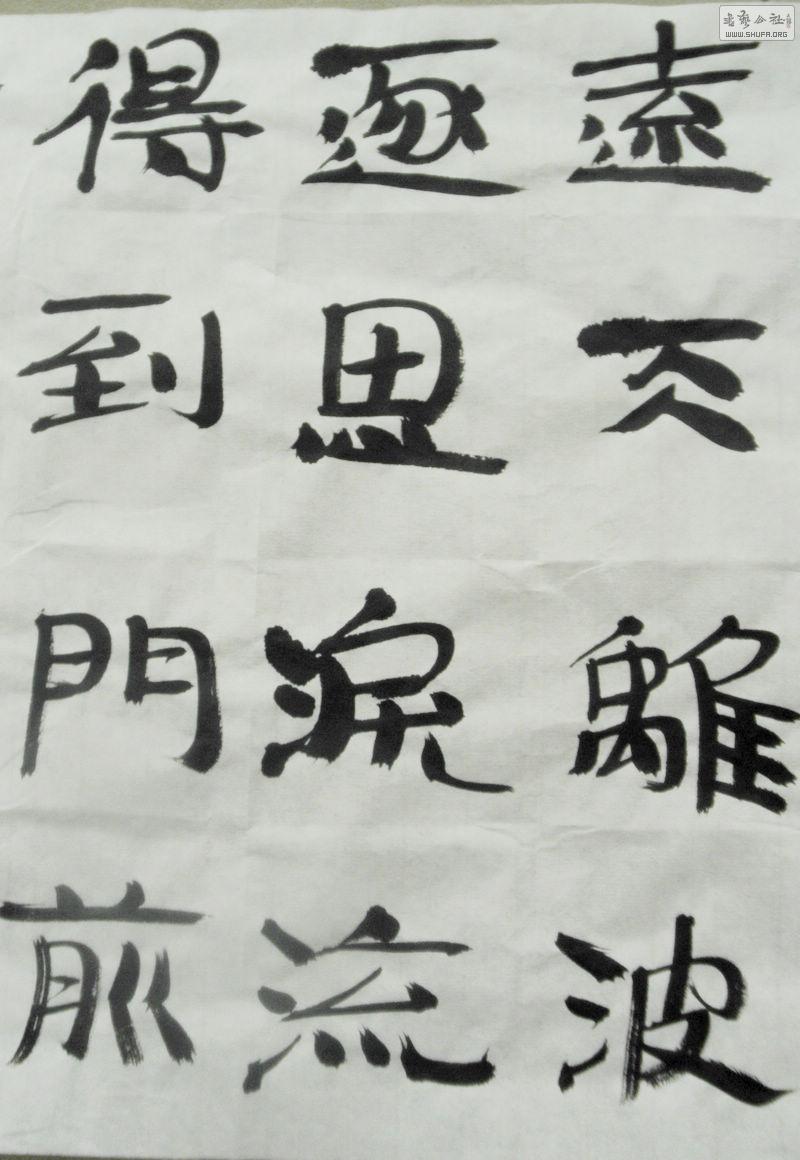 遠不離波
逐思淚流
得到門前
書藝公社
WWW.SHUFA.ORG